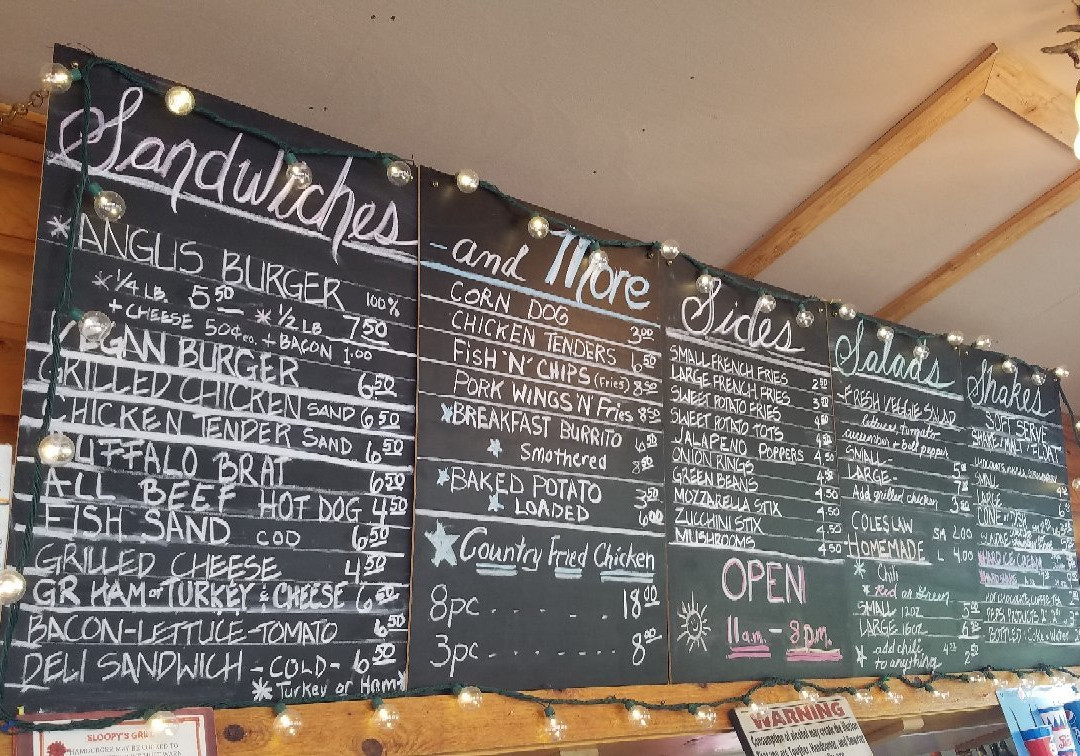 Sandwiches
* ANGUS BURGER 100%
* 1/4 LB. 5 50 * 1/2 LB 7 50
+ CHEESE 50¢ ea. + BACON 1.00
VEGAN BURGER 6 50
GRILLED CHICKEN SAND 6 50
CHICKEN TENDER SAND 6 50
BUFFALO BRAT 6 50
ALL BEEF HOT DOG 4 50
FISH SAND COD 6 50
GRILLED CHEESE 4 50
GR HAM or TURKEY & CHEESE 6 50
BACON-LETTUCE-TOMATO 6 50
DELI SANDWICH - COLD - 6 50
* Turkey or Ham *
- and More
CORN DOG 3 00
CHICKEN TENDERS 6 50
FISH 'N' CHIPS (Fries) 8 50
PORK WINGS 'N' Fries 8 50
* BREAKFAST BURRITO 6 50
* Smothered
* BAKED POTATO 3 50
* LOADED 6 00
Country Fried Chicken
8pc.... 18 00
3pc...... 8 00
Sides
SMALL FRENCH FRIES
LARGE FRENCH FRIES
SWEET POTATO FRIES
SWEET POTATO TOTS
JALAPENO POPPERS 4 50
ONION RINGS 4 50
GREEN BEANS 4.50
MOZZARELLA STIX 4.50
ZUCCHINI STIX 4.50
MUSHROOMS 4 50
OPEN
11 a.m. - 8 p.m.
Salads
FRESH VEGGIE SALAD
lettuce, tomato
cucumber + bell pepper
SMALL -
LARGE -
Add grilled chicken
COLESLAW SM 2.00
HOMEMADE L 4.00
* Chili
* Red or Green
SMALL 12 OZ
LARGE 16 OZ.
* add chili
to anything
Shakes
SOFT SERVE
SHAKE/MALT/FLOAT
SMALL
LARGE
CONE or DISH
HARD ICE CREAM
HOT CHOCOLATE, COFFEE, TEA
PEPSI PRODUCTS
SLOOPY'S GRILL
HAMBURGER MAY BE COOKED TO
WARNING